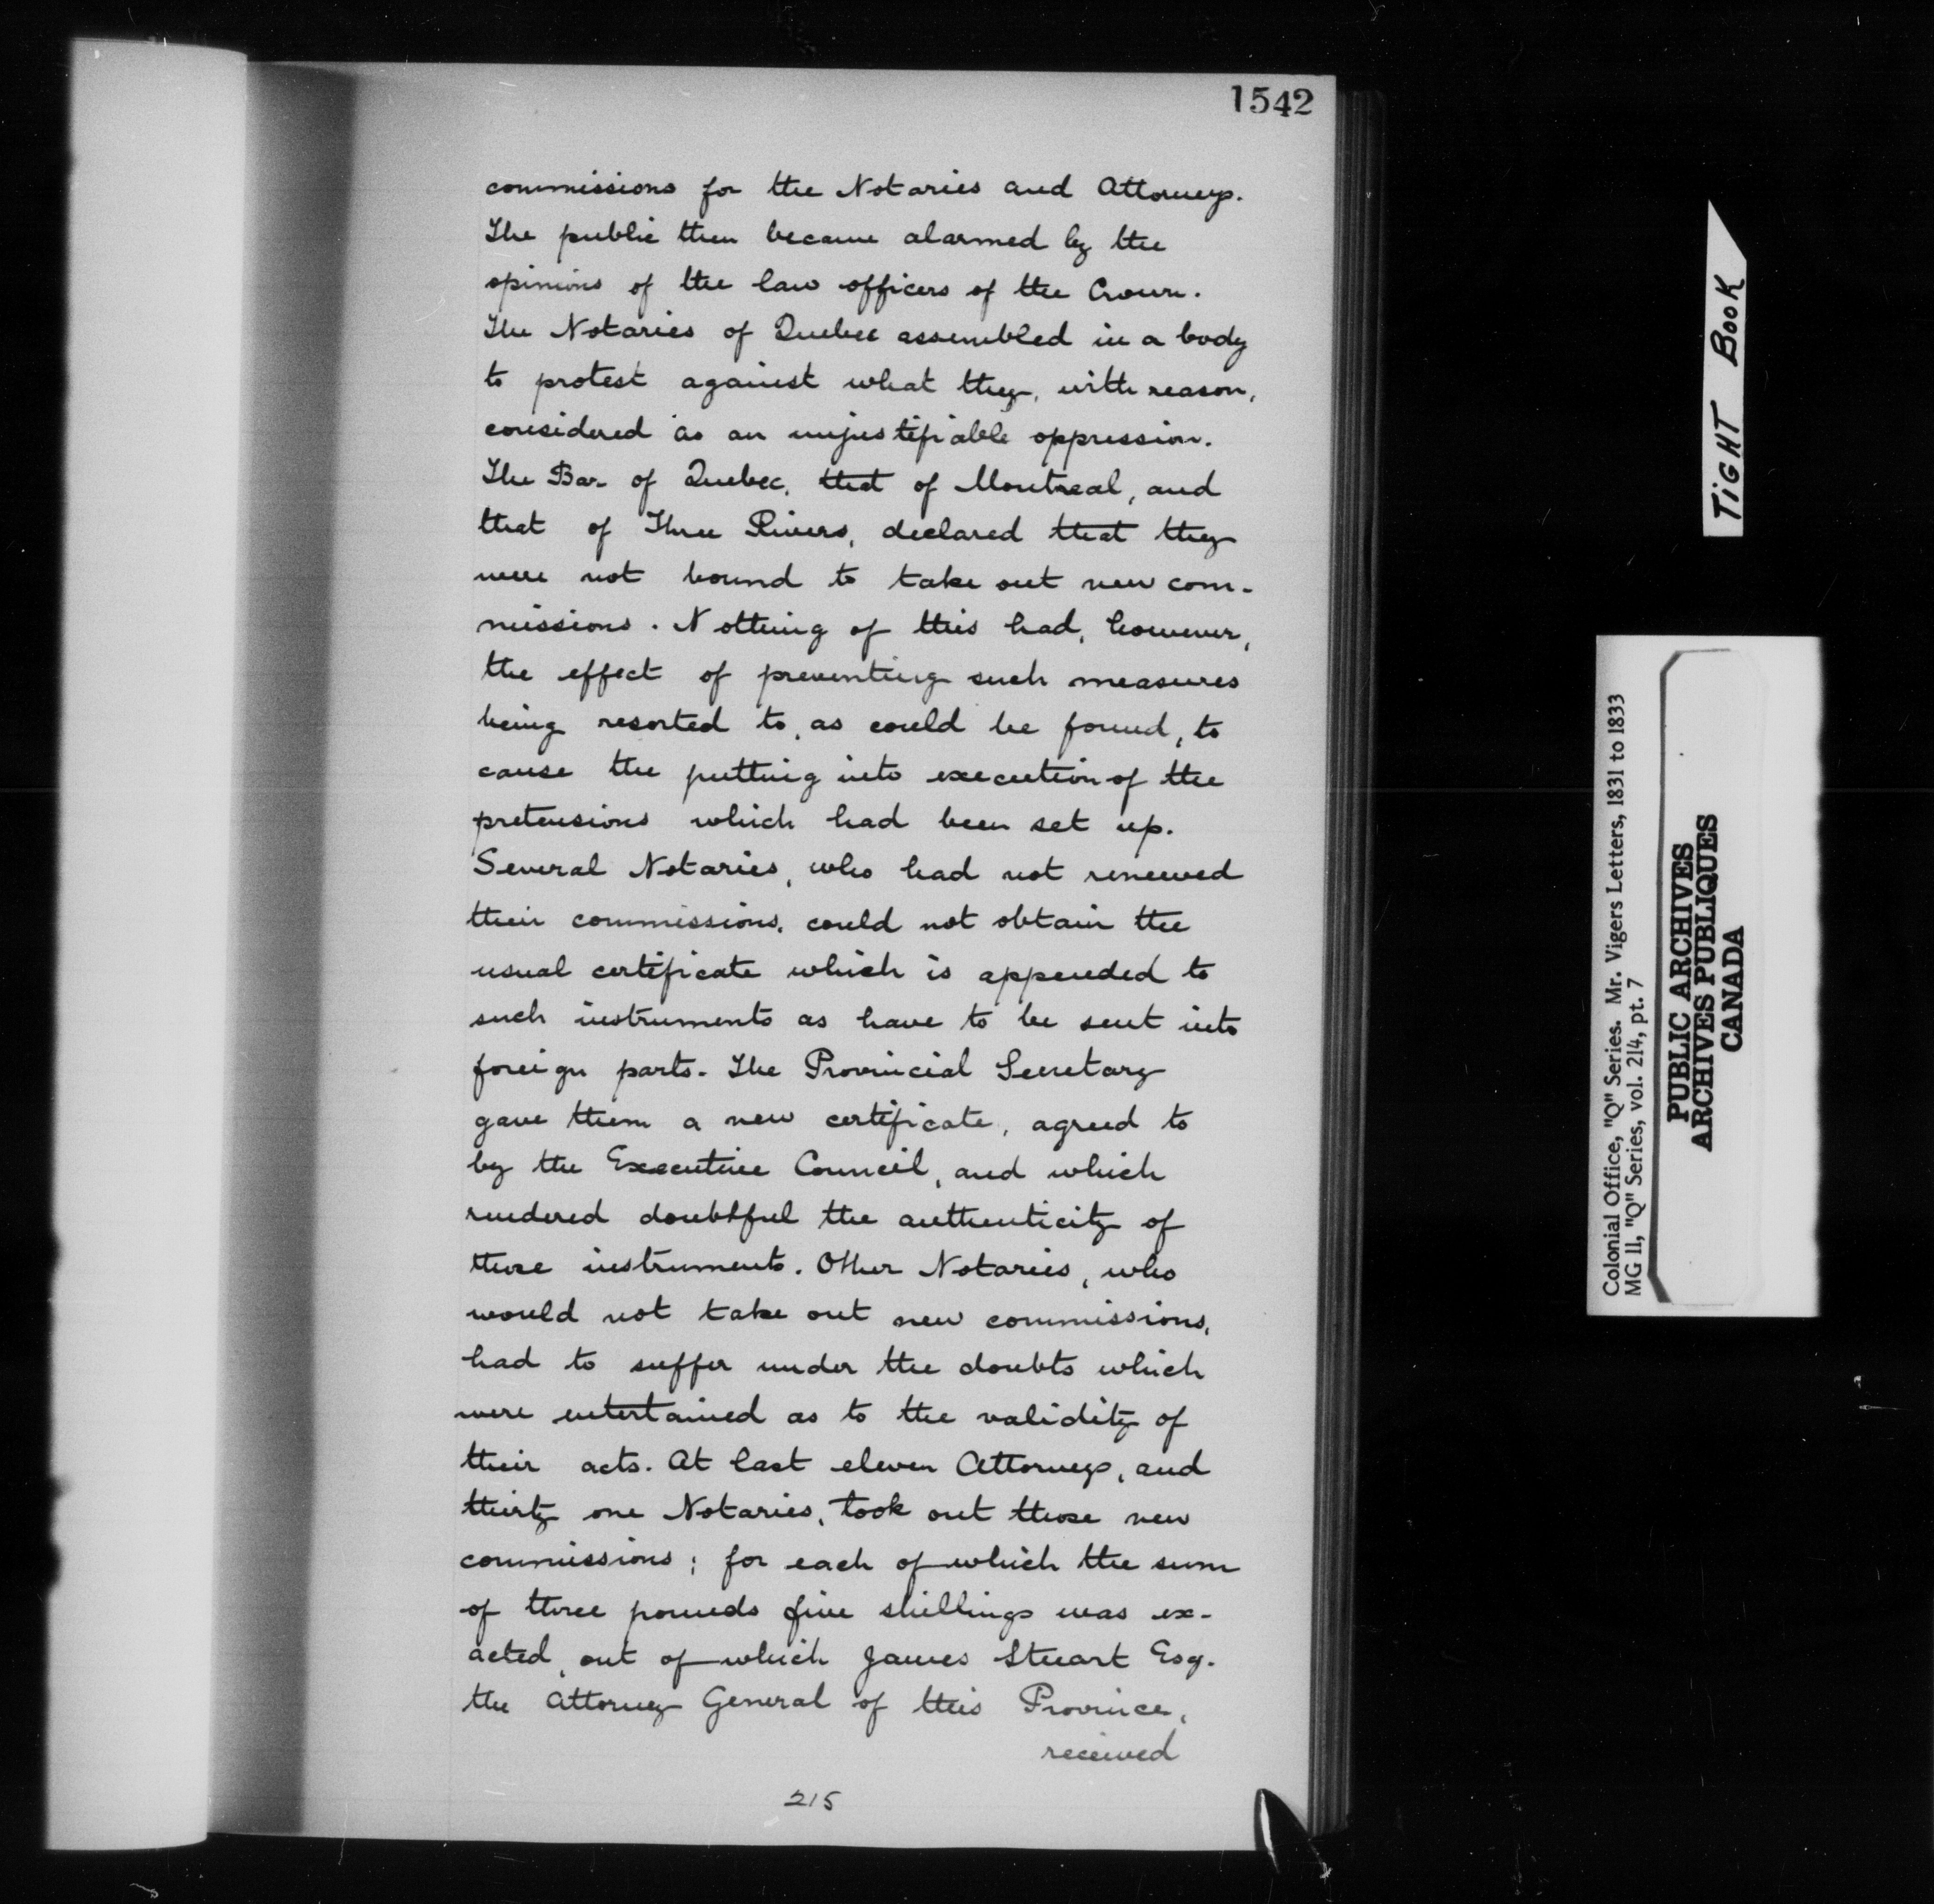 1542
commissions for the Notaries and Attorneys.
The public then became alarmed by the
opinions of the law officers of the Crown.
The Notaries of Quebec assembled in a body
to protest against what they, with reason,
considered as an unjustifiable oppression.
The Bar of Quebec, that of Montreal, and
that of Three Rivers, declared that they
were not bound to take out new com-
missions. Nothing of this had, however,
the effect of preventing such measures
being resorted to, as could be found, to
cause the putting into execution of the
pretensions which had been set up.
Several Notaries, who had not renewed
their commissions, could not obtain the
usual certificate which is appended to
such instruments as have to be sent into
foreign parts. The Provincial Secretary
gave them a new certificate, agreed to
by the Executive Council, and which
rendered doubtful the authenticity of
those instruments. Other Notaries, who
would not take out new commissions,
had to suffer under the doubts which
were entertained as to the validity of
their acts. At last eleven Attorneys, and
thirty one Notaries, took out those new
commissions; for each of which the sum
of three pounds five shillings was ex-
acted, out of which James Stuart Esq.
the Attorney General of this Province,
received
215
TIGHT BOOK
Colonial Office, "Q" Series. Mr. Vigers Letters, 1831 to 1833
MG 11, "Q" Series, vol. 214, pt. 7
PUBLIC ARCHIVES
ARCHIVES PUBLIQUES
CANADA